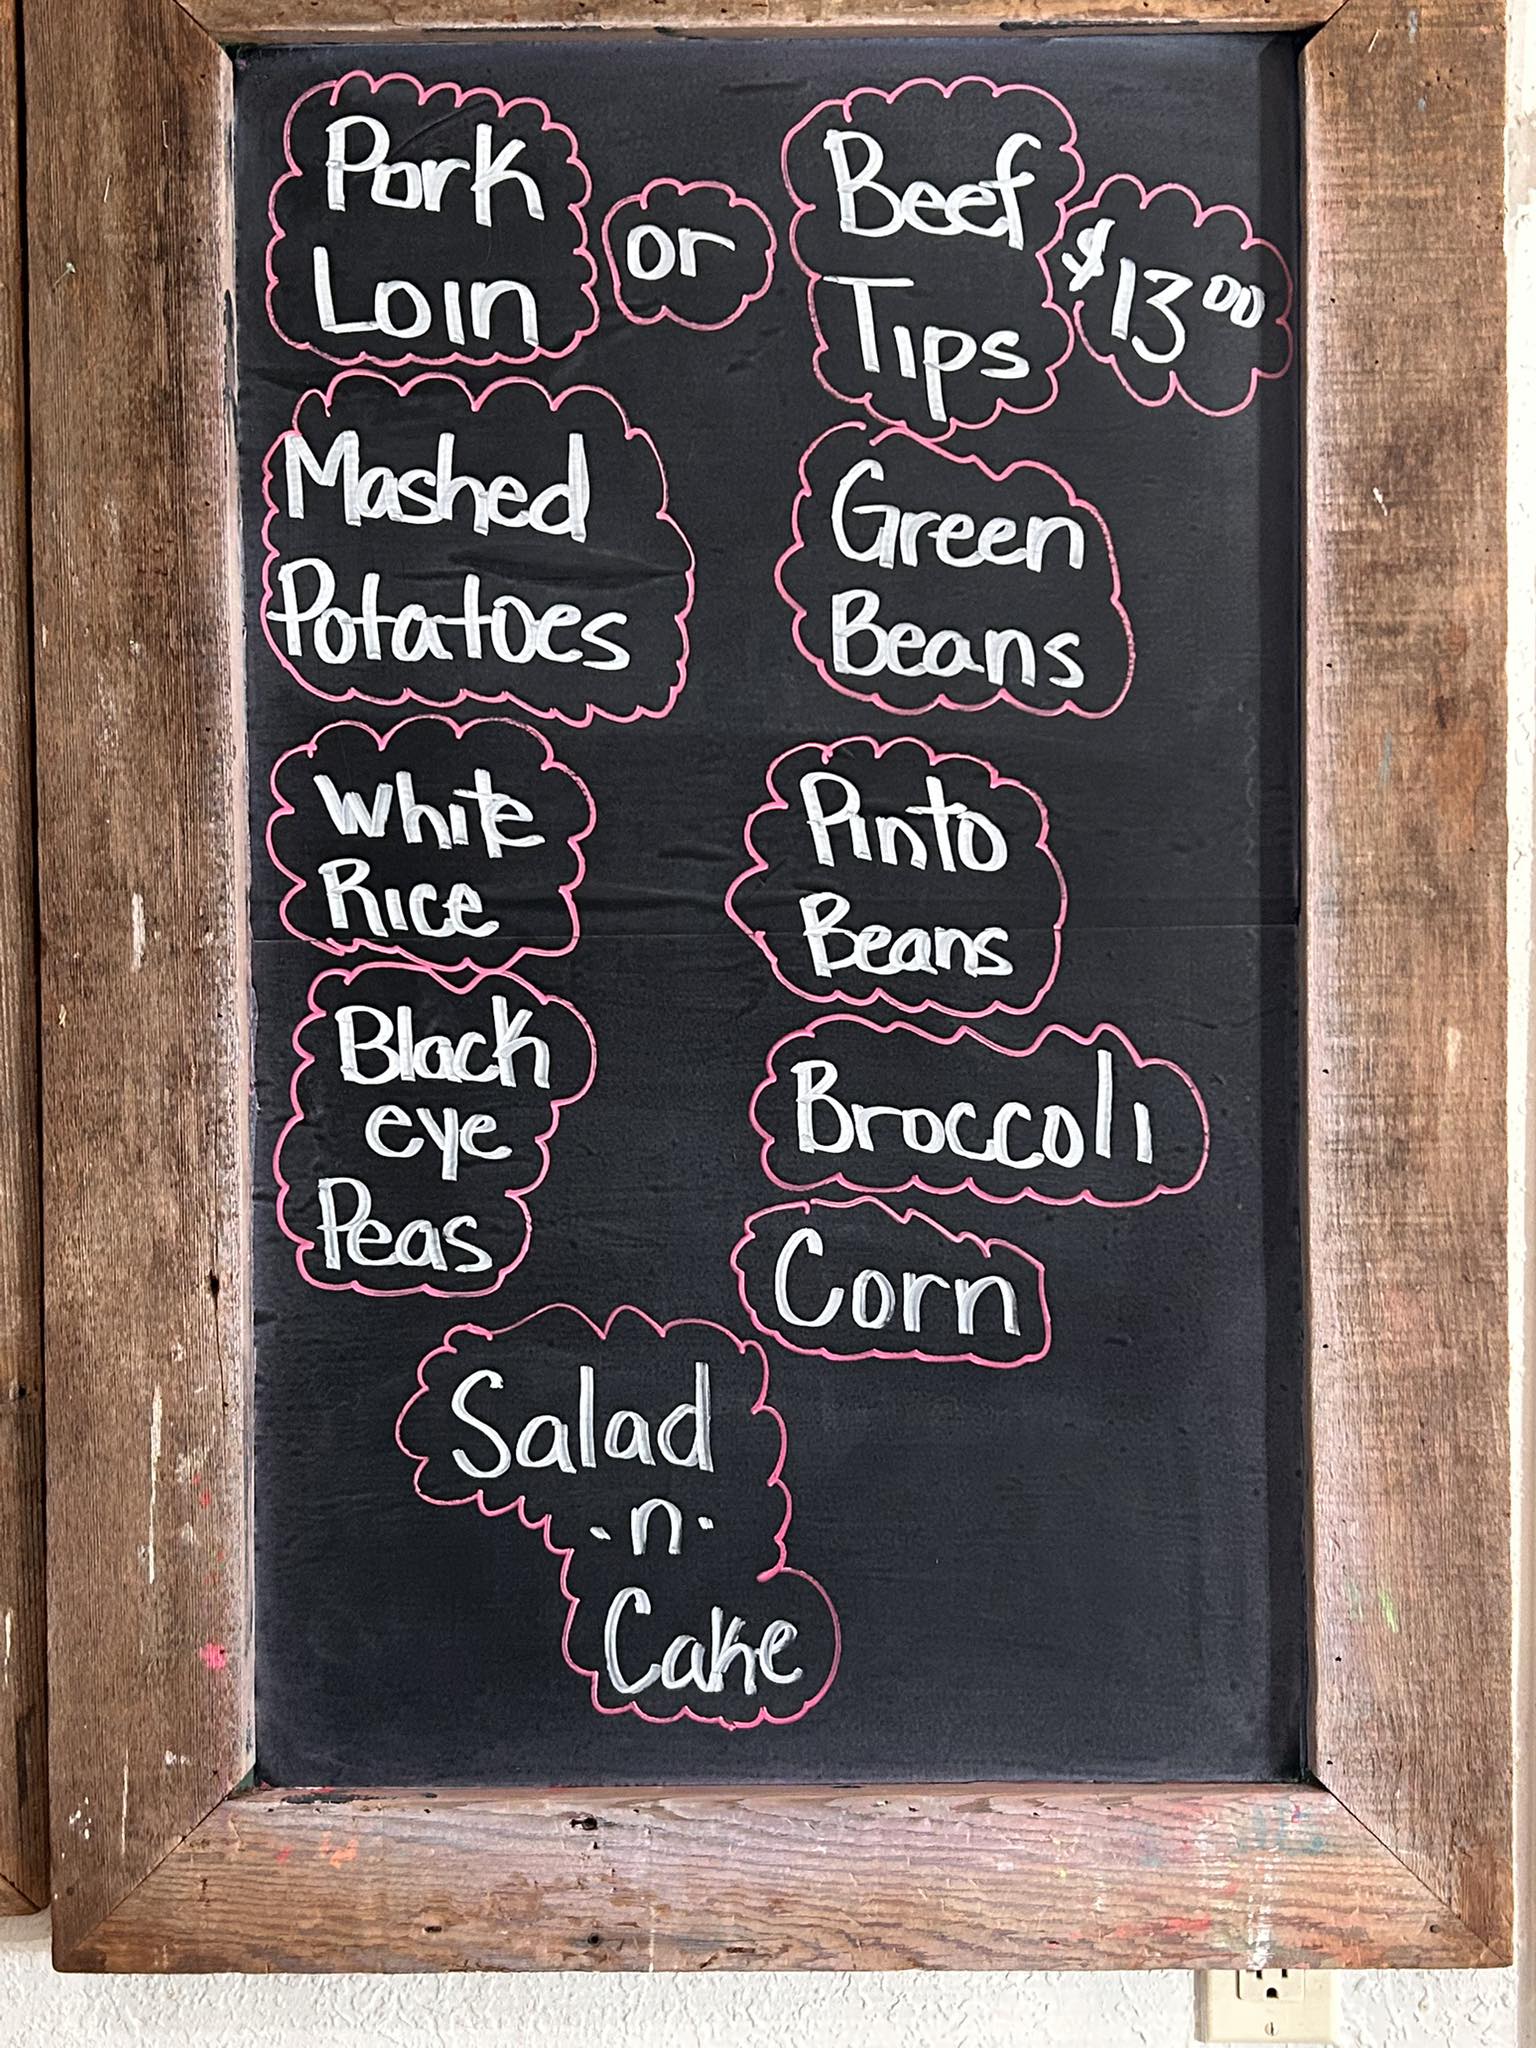 Pork
Loin
or
Beef
Tips
$13⁰⁰
Mashed
Potatoes
Green
Beans
White
Rice
Pinto
Beans
Black
eye
Peas
Broccoli
Corn
Salad
·n·
Cake